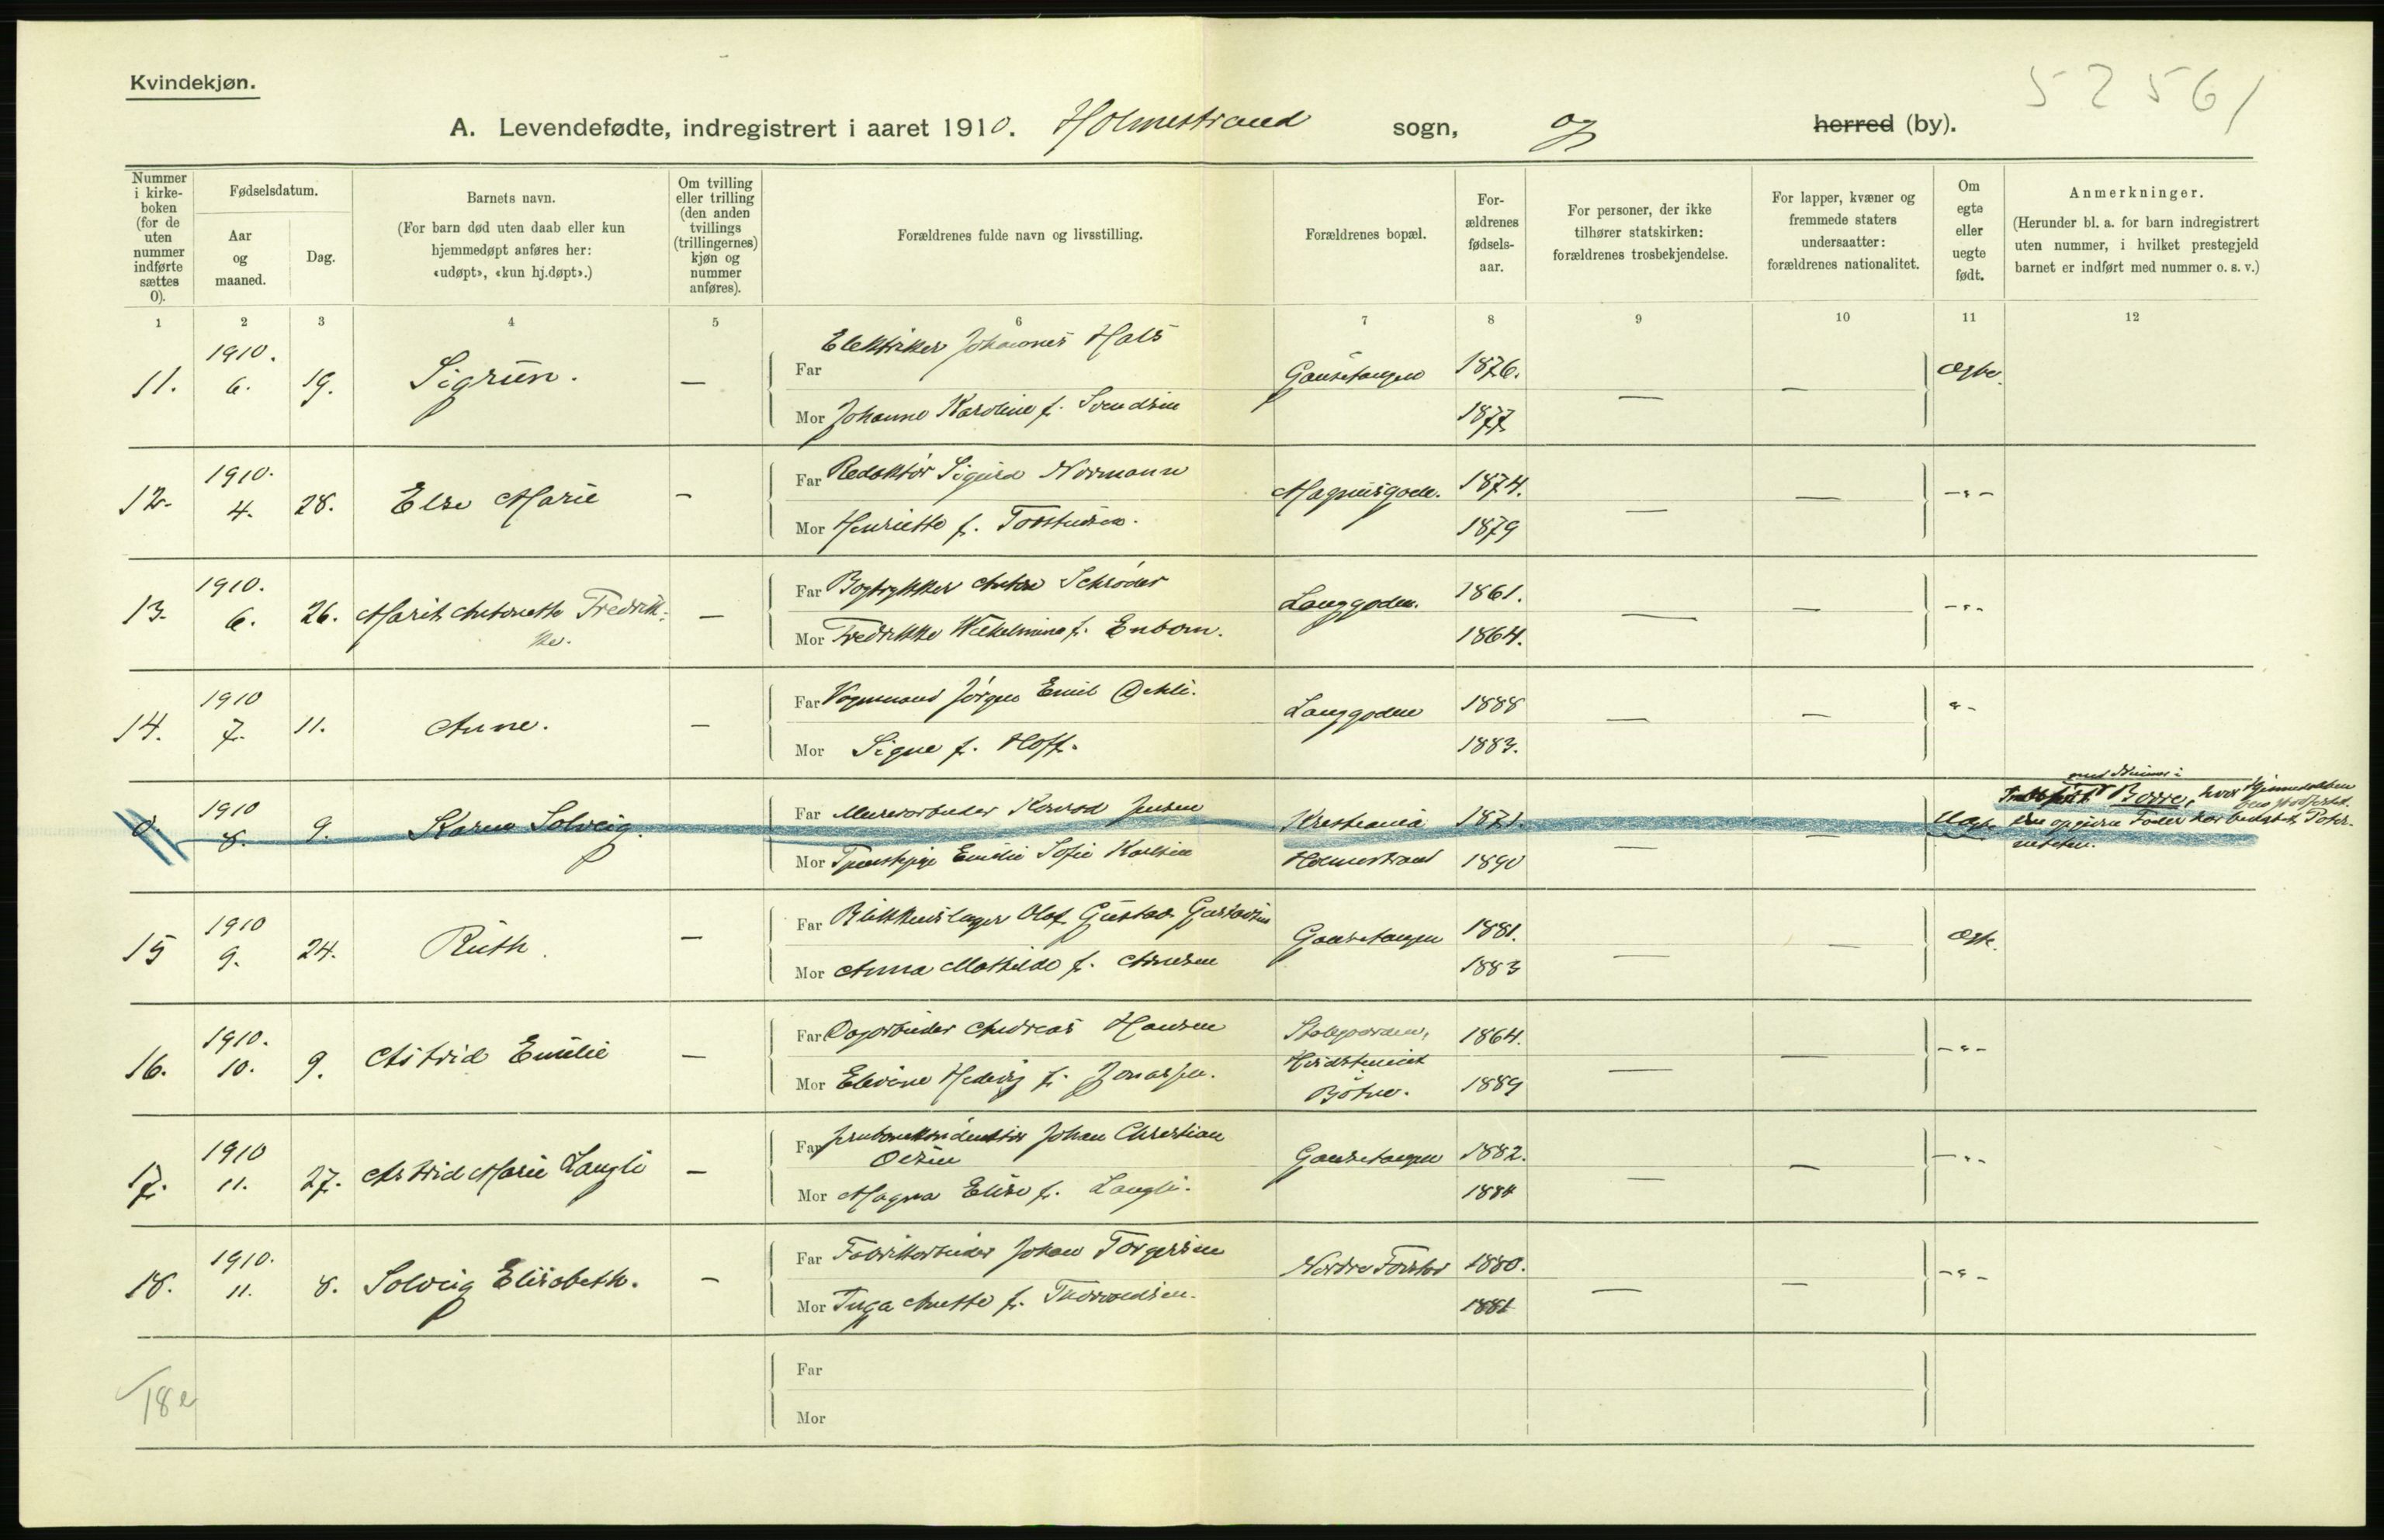 Kvindekjøn.
5 2 5 6 1
A. Levendefødte, indregistrert i aaret 1910. Holmestrand sogn, og herred (by).
Nummer i kirke-boken (for de uten nummer indførte sættes 0).
Fødselsdatum.
Aar og maaned.
Dag.
Barnets navn.
(For barn død uten daab eller kun hjemmedøpt anføres her: «udøpt», «kun hj.døpt».)
Om tvilling eller trilling (den anden tvillings (trillingernes) kjøn og nummer anføres).
Forældrenes fulde navn og livsstilling.
Forældrenes bopæl.
For-ældrenes fødsels-aar.
For personer, der ikke tilhører statskirken: forældrenes trosbekjendelse.
For lapper, kvæner og fremmede staters undersaatter: forældrenes nationalitet.
Om egte eller uegte født.
Anmerkninger.
(Herunder bl. a. for barn indregistrert uten nummer, i hvilket prestegjeld barnet er indført med nummer o. s. v.)
1 2 3 4 5 6 7 8 9 10 11 12
11. 1910. 6. 19. Sigrun. — Far Elektriker Johannes Hals Gausetangen 1876. — — Egte.
Mor Johanne Karoline f. Svendsen 1877
12. 1910. 4. 28. Else Marie — Far Redaktør Sigurd Normann Magnusgden. 1874. — — -"-
Mor Henriette f. Torstensen. 1879
13. 1910. 6. 26. Marit Antonette Fredrik-ke. — Far Bogtrykker Anton Schrøder Langgaden. 1861. — — -"-
Mor Fredrikke Wilhelmine f. Enbom. 1864.
14. 1910 7. 11. Anne. — Far Vognmand Jørgen Emil Oehli. Langgaden 1888 — — "-
Mor Signe f. Hoff. 1883.
0. 1910 8. 9. Karen Solveig. Far Murerarbeider Konrad Jensen Kristiania 1871. — Uegte
Mor Tjenestepige Emilie Sofie Karlsen Holmestrand 1890 —
med Numer i Borre, hvor Hjemmedaaben
opgivne Fader har
15 1910 9. 24. Ruth. — Far Blikkenslager Olof Gustav Gustavsen Gausetangen 1881. — — Egte.
Mor Anna Mathilde f. Arnesen 1883
16. 1910. 10. 9. Astrid Emilie — Far Dagarbeider Andreas Hansen 1864. — — -"-
Mor Elevine Hedvig f. Jonassen. Botne. 1889
17. 1910 11. 27. Astrid Marie Langli — Far Johan Christian Olsen Gausetangen 1882. — — -"-
Mor Magna Elise f. Langli. 1884
18. 1910. 11. 8. Solveig Elisabeth. — Far Fabrikarbeider Johan Torgersen Nordre Forstad 1880. — — -"-
Mor Inga Anette f. Thorvaldsen. 1881
18 Far
Mor